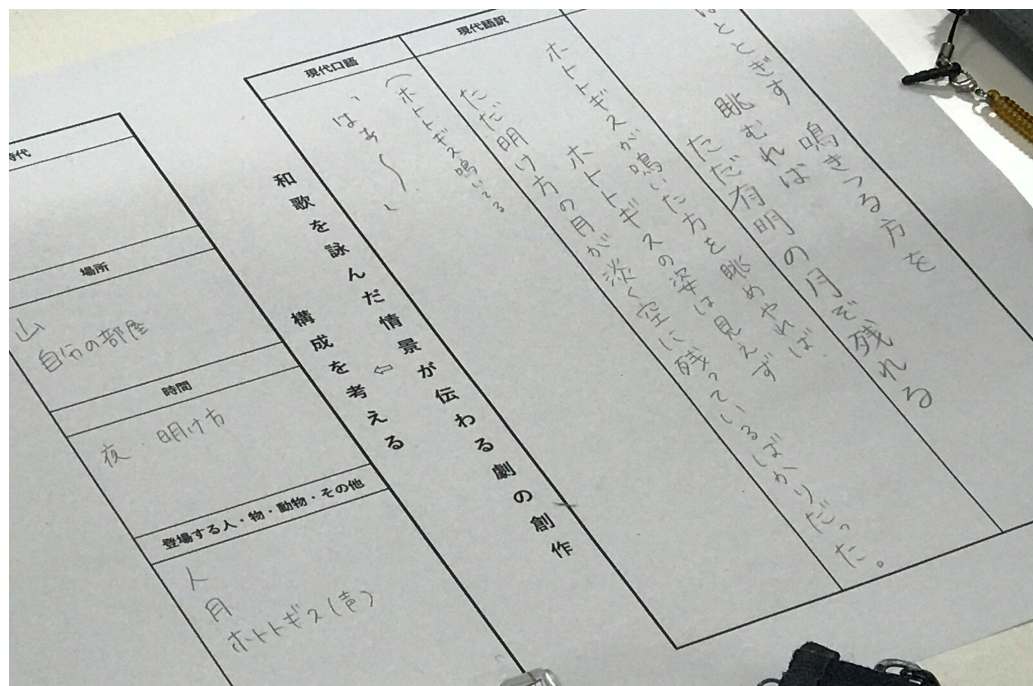 ほととぎす 鳴きつる方を
眺むれば
ただ有明の月ぞ残れる
現代語訳
ホトトギスが鳴いた方を眺めやれば、
ホトトギスの姿は見えず
ただ明け方の月が淡く空に残っているばかりだった。
現代口語
(ホトトギス鳴いてる
和歌を詠んだ情景が伝わる劇の創作
⇦
構成を考える
時代
場所
山
自分の部屋
時間
夜 明け方
登場する人・物・動物・その他
人
月
ホトトギス(声)